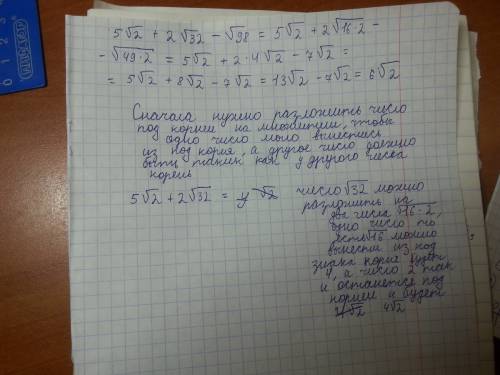 5√2 + 2√32 - √98 = 5√2 + 2√16·2 -
- √49·2 = 5√2 + 2·4√2 - 7√2 =
= 5√2 + 8√2 - 7√2 = 13√2 - 7√2 = 6√2
Сначала нужно разложить число
под корнем на множители, чтобы
одно число могло вынестись
из под корня, а другое число должно
быть таким как у другого числа
корень
5√2 + 2√32 =
число √32 можно
разложить на
два числа √16·2,
одно число то
есть √16 можно
вынести из под
знака корня будет
4, а число 2 так
и останется под
корнем и будет
4√2 4√2
0 1 2 3